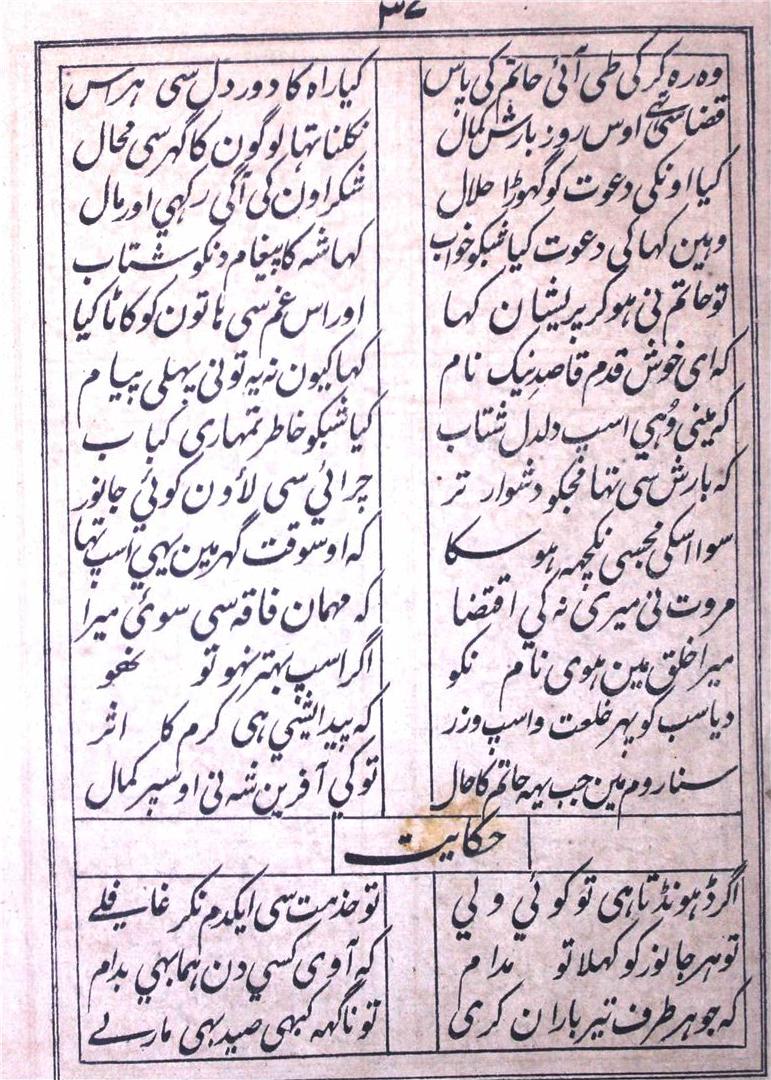 ٣٧
وہ رہ کر کی طی آئی حاتم کی پاس کیا راہ کا دور دل سی ہراس
قضا سی اوس روز بارش کمال نکلنا تہا لوگون کا گہر سی محال
کیا اونکی دعوت کو گہوڑا حلال شکر اون کی آگی رکہی اور مال
وہین کہا کی دعوت کیا شبکو خواب کہا شہ کا پیغام دنکو شتاب
تو حاتم نی ہو کر پریشان کہا اور اس غم سی ہاتون کو کاٹا کیا
کہ ای خوش قدم قاصد نیک نام کہا کیون نہ یہ تو نی پہلی پیام
کہ مینی وُہی اسپ دلدل شتاب کیا شبکو خاطر تمہاری کباب
کہ بارش سی تہا مجکو دشوار تر چرائی سی لاؤن کوئی جانور
سوا اسکی مجسی نکچہہ ہو سکا کہ اوسوقت گہر مین یہی اسپ تہا
مروت نی میری نہ کی اقتضا کہ مہمان فاقہ سی سوئی میرا
میرا خلق مین ہوی نام نکو اگر اسپ بہتر نہو تو نہو
دیا سب کو پہر خلعت و اسپ و زر کہ پیدایشی ہی کرم کا اثر
سنا روم مین جب یہہ حاتم کا حال تو کی آفرین شہ نی اوسپر کمال
حکایت
اگر ڈہونڈتا ہی تو کوئی ولی تو خدمت سی ایکدم نکر غافلے
تو ہر جانور کو کہلا تو مدام کہ آوی کسی دن ہما بہی بدام
کہ جو ہر طرف تیر باران کری تو ناگہہ کبہی صید بہی مارے